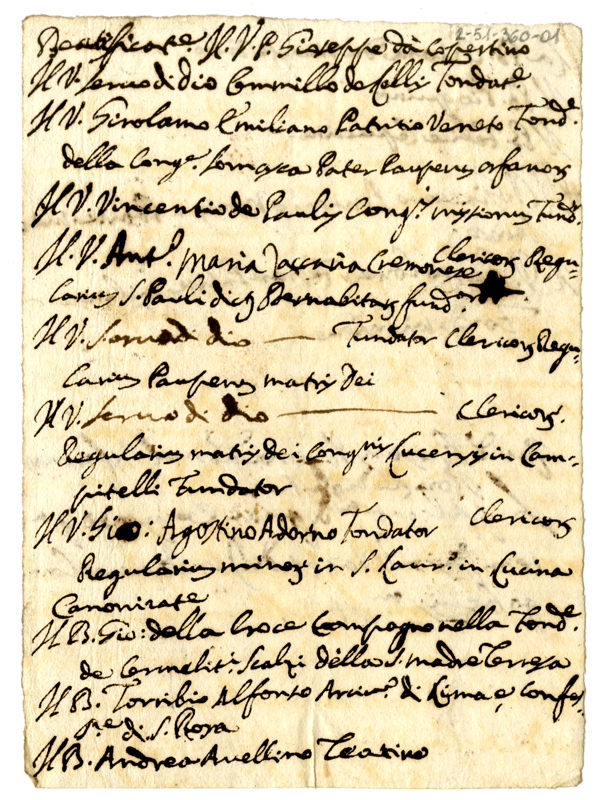 2-51-360-01
Beatificate. Il V. P. Gioseppe da Copertino
Il V. Servo di dio Cammillo de Lelly Fondat.e
Il V. Girolamo Emiliano Patritio Veneto Fond.e
della Cong.e Somasca Pater Pauperum orfanorum
Il V. Vincentio de Paulis Cong.is missionum Fund.
Il V. Ant.o Maria Zaccaria Cremonese Clericorum Regu-
larium S. Pauli Bernabitarum fund.
Il V. Servo di dio — Fundator Clericorum Regu-
larium Pauperum matris Dei
Il V. Servo di dio — Clericorum
Regularium matris dei Cong.nis Lucensis in Cam-
pitelli Fundator
Il V. Gio: Agostino Adorno Fondator Clericorum
Regularium minorum in S. Laur.o in Lucina
Canonizate
Il B. Gio: della Croce Compagno nella Fond.e
de Carmelit.i Scalzi della S. Madre Teresa
Il B. Torribio Alfonso Arciv.o di Lima e, Confes-
s.re di S. Rosa
Il B. Andrea Avellino Teatino